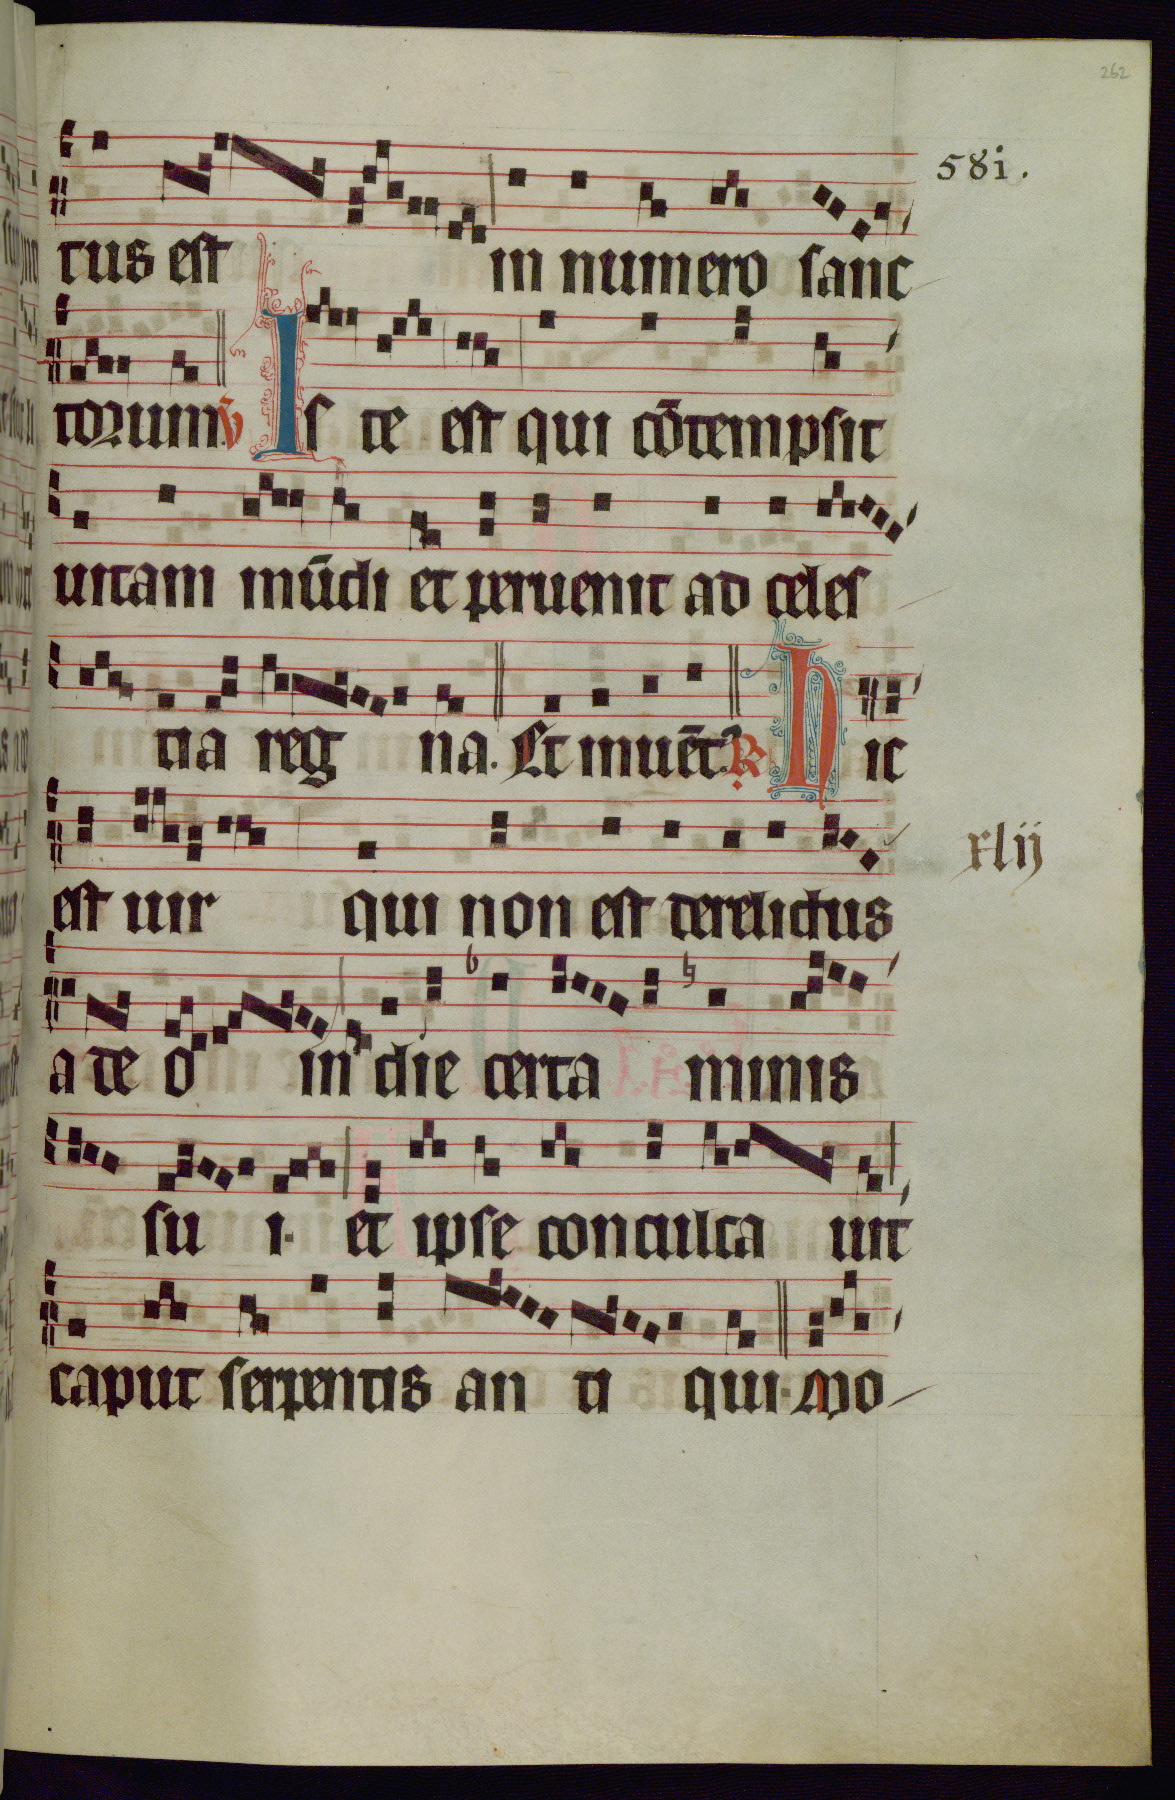 262
58i.
tus est in numero sanc
torum ℣ Is te est qui cōtempsit
uitam mūdi et peruenit ad celes
tia reg na. Et inuēt. ℟ Hic
est uir qui non est derelictus
xlij
a de o in die certa minis
su i. et ipse conculca uit
caput serpentis an ti qui. Mo